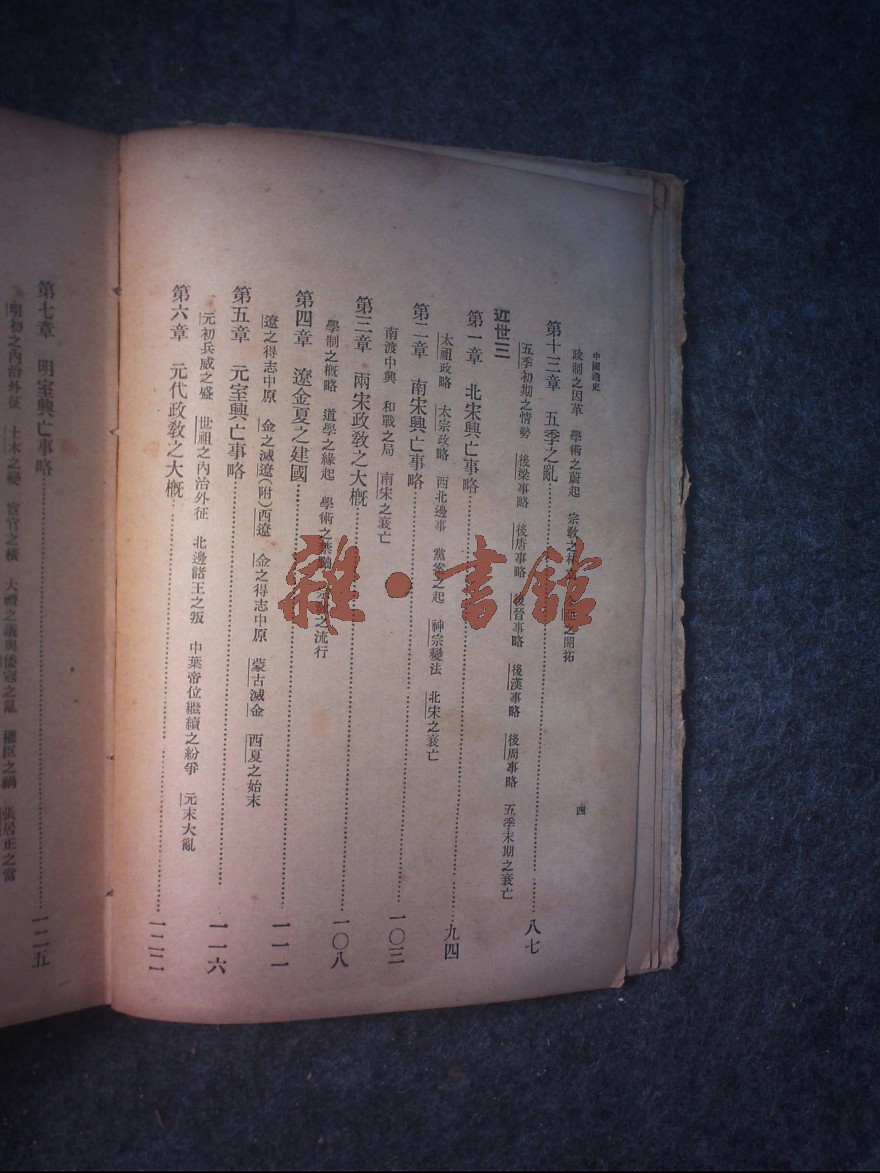 中國通史
四
政制之因革　學術之蔚起　宗敎之 之開拓
第十三章　五季之亂……八七
五季初期之情勢　後梁事略　後唐事略　後晉事略　後漢事略　後周事略　五季末期之衰亡
近世三
第一章　北宋興亡事略……九四
太祖政略　太宗政略　西北邊事　黨案之起　神宗變法　北宋之衰亡
第二章　南宋興亡事略……一〇三
南渡中興　和戰之局　南宋之衰亡
第三章　兩宋政敎之大槪……一〇八
學制之槪略　道學之緣起　學術之 之流行
第四章　遼金夏之建國……一一一
遼之得志中原　金之滅遼(附)西遼　金之得志中原　蒙古滅金　西夏之始末
第五章　元室興亡事略……一一六
元初兵威之盛　世祖之內治外征　北邊諸王之叛　中葉帝位繼續之紛爭　元末大亂
第六章　元代政敎之大槪……一二二
第七章　明室興亡事略……一二五
明初之內治外征　土木之變　宦官之橫　大禮之議與倭寇之亂　權臣之禍　張居正之當
雜·書館